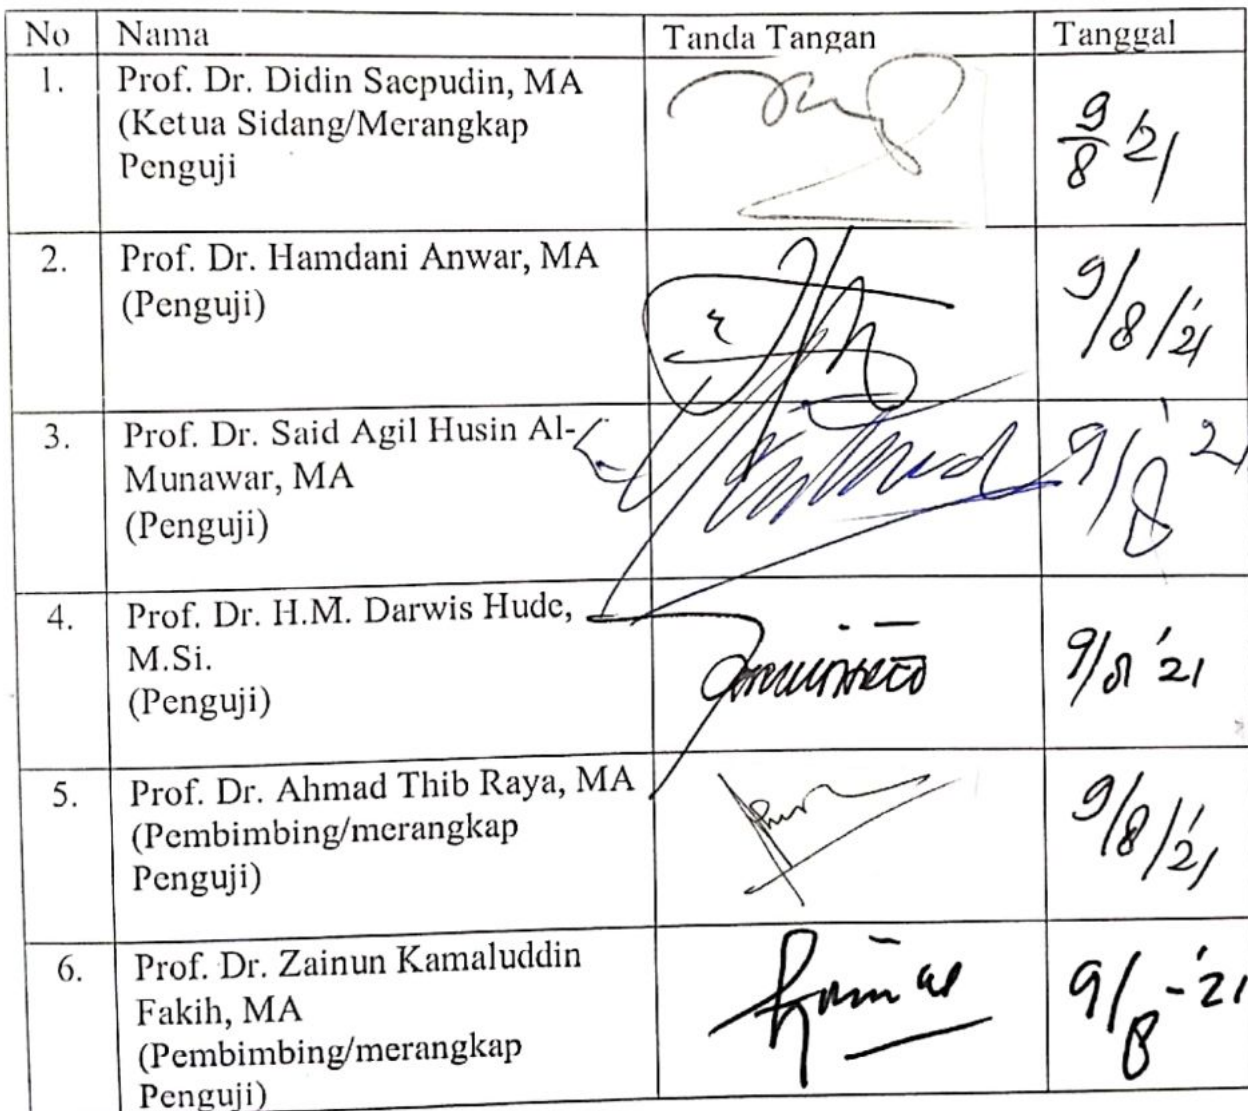 No Nama Tanda Tangan Tanggal
1. Prof. Dr. Didin Saepudin, MA
(Ketua Sidang/Merangkap
Penguji
9/8 '21
2. Prof. Dr. Hamdani Anwar, MA
(Penguji)
9/8/'21
3. Prof. Dr. Said Agil Husin Al-
Munawar, MA
(Penguji)
9/8 '21
4. Prof. Dr. H.M. Darwis Hude,
M.Si.
(Penguji)
9/8 '21
5. Prof. Dr. Ahmad Thib Raya, MA
(Pembimbing/merangkap
Penguji)
9/8/'21
6. Prof. Dr. Zainun Kamaluddin
Fakih, MA
(Pembimbing/merangkap
Penguji)
9/8-'21